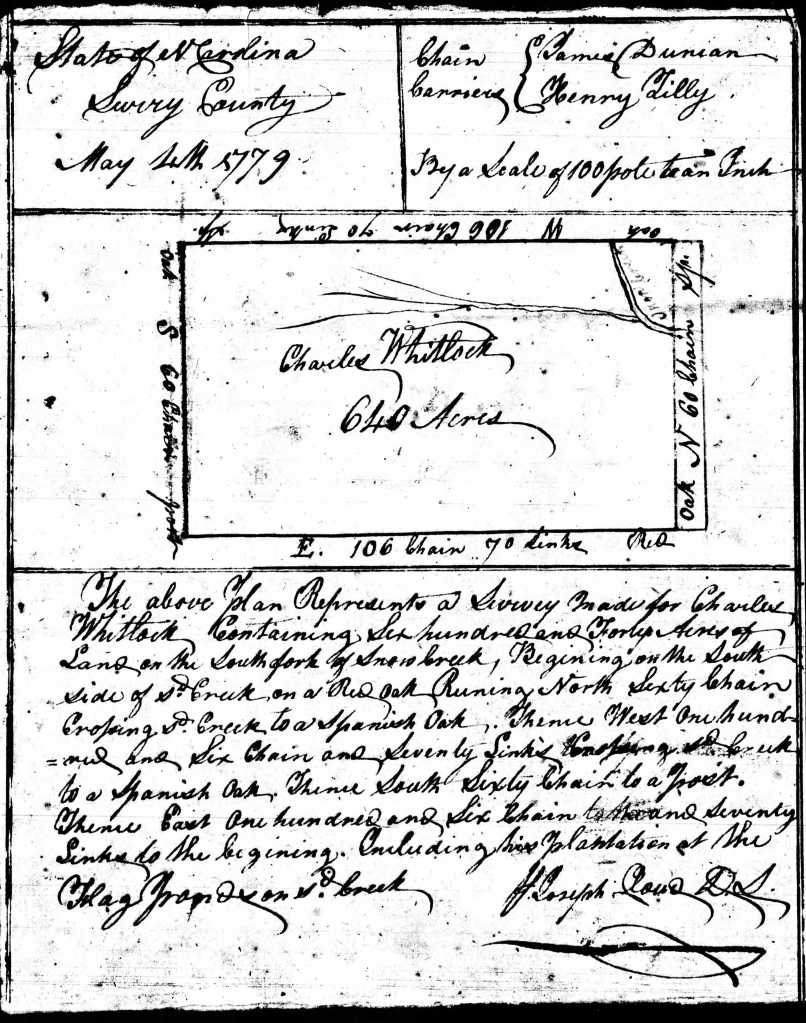 State of N Carolina
Surry County
May 4th 1779
Chain Carriers { James Duncan
Henry Tilly
By a Scale of 100 pole to an Inch
Sp. 70 Links Chain 106 W Oak
Oak S 60 Chain post
Sp.
Oak N 60 Chain
Charles Whitlock
640 Acres
E. 106 Chain 70 Links Red
The above Plan Represents a Survey made for Charles
Whitlock Containing Six hundred and Forty Acres of
Land on the South fork of Snow Creek, Begining on the South
side of sd. Creek on a Red Oak Runing North Sixty Chain
Crossing sd. Creek to a Spanish Oak. Thence West One hund-
=red and Six Chain and Seventy Links Crossing sd. Creek
to a Spanish Oak. Thence South Sixty Chain to a Post.
Thence East One hundred and Six Chain and Seventy
Links to the begining. Including his Plantation at the
Flag Ponds on sd. Creek
Joseph D.S.